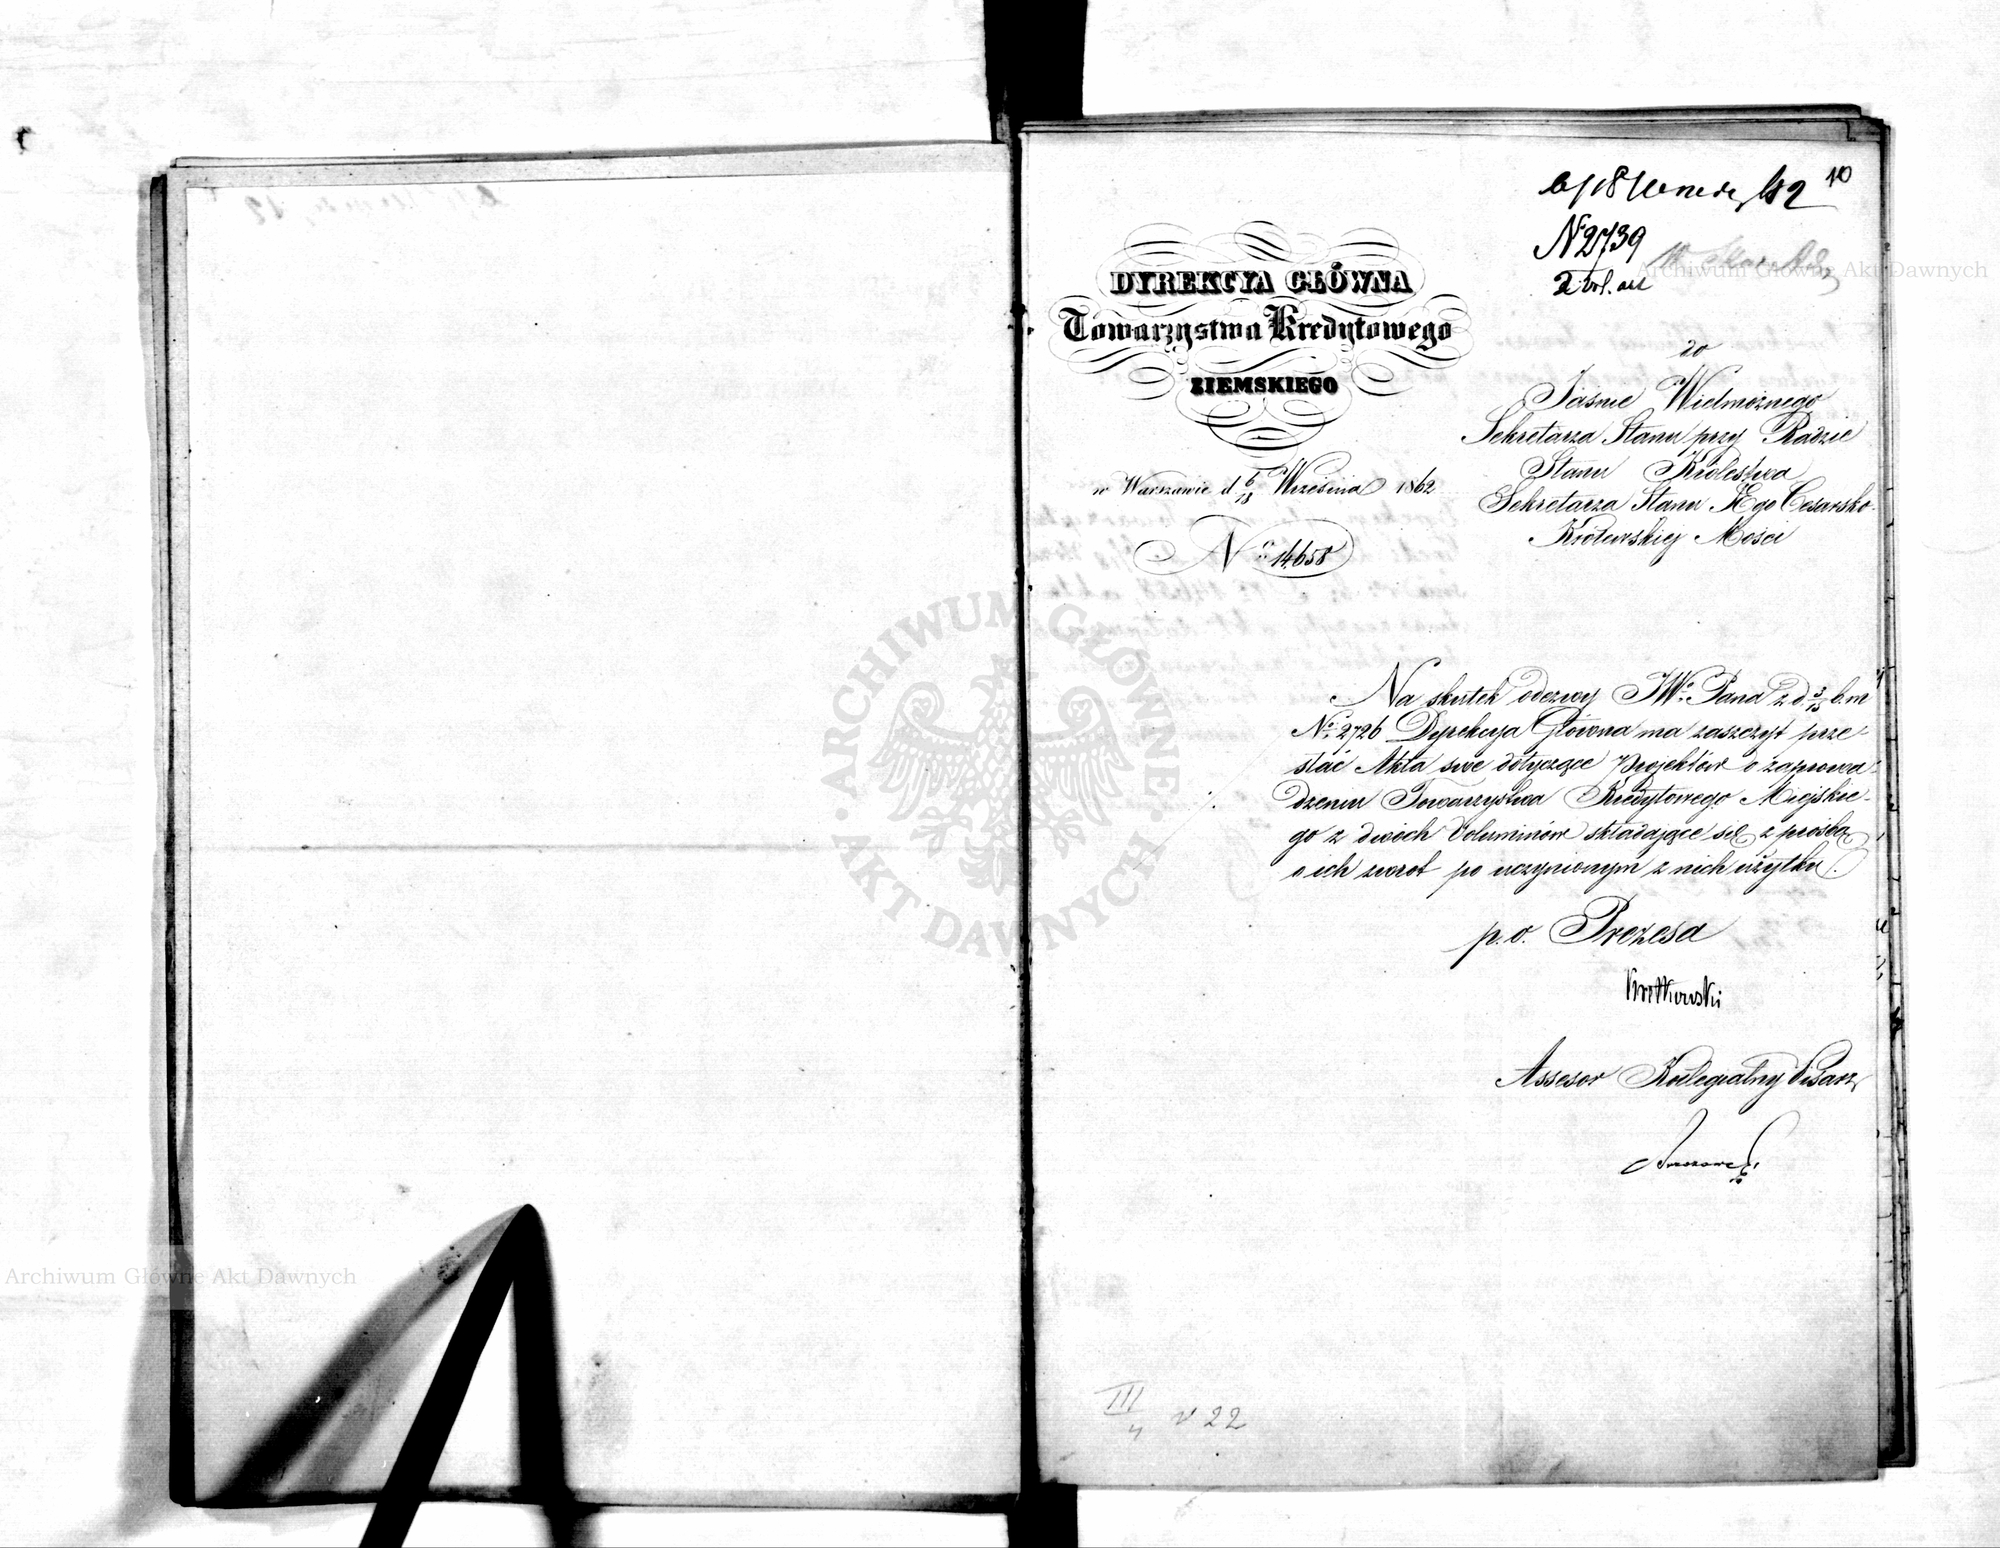 10
№ 2739
2 vol. akt
DYREKCYA GŁÓWNA
Towarzystwa Kredytowego
ZIEMSKIEGO
w Warszawie d 6/18 Września 1862
№ 14658
Do
Jaśnie Wielmożnego
Sekretarza Stanu przy Radzie
Stanu Królestwa
Sekretarza Stanu JEgo Cesarsko-
Królewskiej Mości
Na skutek odezwy JWo Pana z d 3/15 b.m
No 2726 Dyrekcya Główna ma zaszczyt prze-
słać Akta swe dotyczące Projektów o zaprowa-
dzeniu Towarzystwa Kredytowego Miejskie-
go z dwóch Voluminów składające się, z prośbą
o ich zwrot po uczynionym z nich użytku.
p. o. Prezesa
Assesor Kollegialny Pisarz
III/4 v 22
ARCHIWUM GŁÓWNE AKT DAWNYCH
Archiwum Główne Akt Dawnych
Archiwum Główne Akt Dawnych